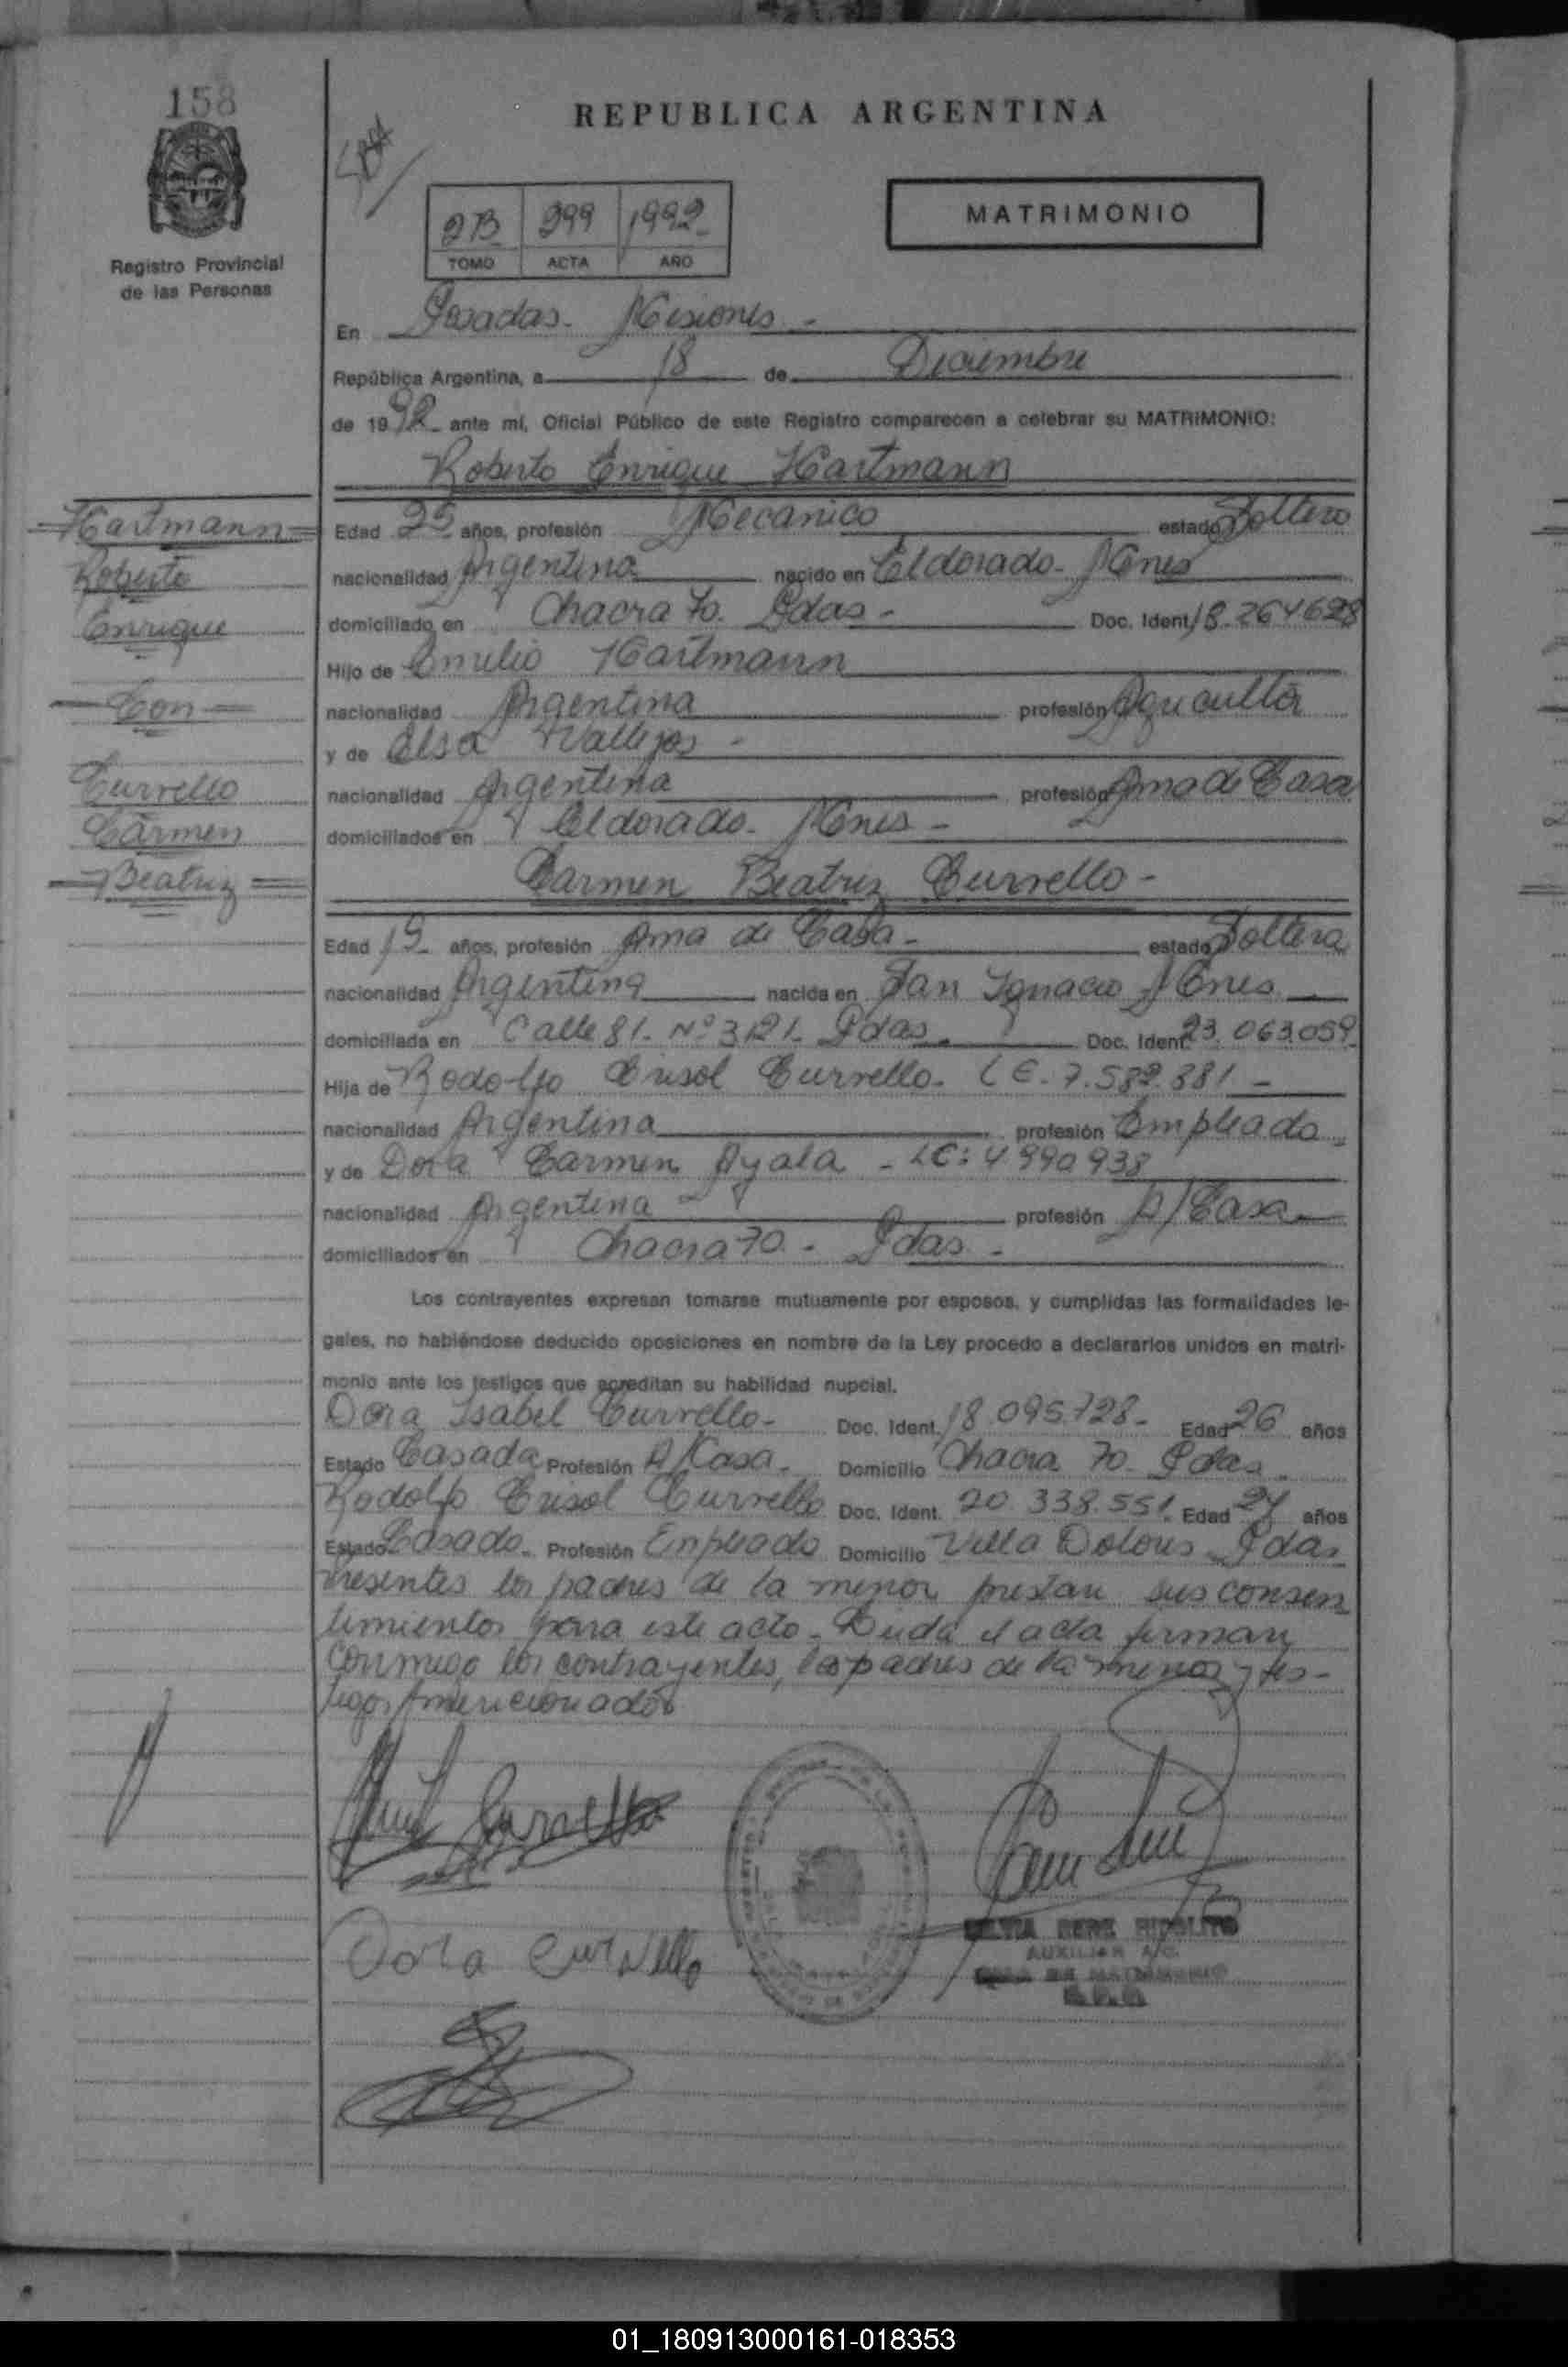 158
REPUBLICA ARGENTINA
MATRIMONIO
2B 299 1992
TOMO ACTA AÑO
Registro Provincial
de las Personas
En Posadas - Misiones -
República Argentina, a 18 de Diciembre
de 1992 ante mí, Oficial Público de este Registro comparecen a celebrar su MATRIMONIO:
Roberto Enrique Hartmann
Hartmann
Roberto
Enrique
Con
Currello
Carmen
Beatriz
Edad 25 años, profesión Mecanico estado Soltero
nacionalidad Argentina nacido en Eldorado - Mnes
domiciliado en Chacra 70. Pdas - Doc. Ident. 18.264628
Hijo de Emilio Hartmann
nacionalidad Argentina profesión Agricultor
y de Elsa Vallejos -
nacionalidad Argentina profesión Ama de Casa
domiciliados en Eldorado - Mnes -
Carmen Beatriz Currello -
Edad 19 años, profesión Ama de Casa - estado Soltera
nacionalidad Argentina nacida en San Ignacio Mnes
domiciliada en Calle 81 - Nº 3121 - Pdas. Doc. Ident. 23.063.059
Hija de Rodolfo Crisol Currello - LE. 7.582.381 -
nacionalidad Argentina profesión Empleado
y de Dora Carmen Ayala - LC: 4990938
nacionalidad Argentina profesión A/Casa
domiciliados en Chacra 70 - Pdas -
Los contrayentes expresan tomarse mutuamente por esposos, y cumplidas las formalidades le-
gales, no habiéndose deducido oposiciones en nombre de la Ley procedo a declararlos unidos en matri-
monio ante los testigos que acreditan su habilidad nupcial.
Dora Isabel Currello - Doc. Ident. 18.095.728 - Edad 26 años
Estado Casada Profesión A/Casa. Domicilio Chacra 70 - Pdas
Rodolfo Crisol Currello Doc. Ident. 20.338.551 Edad 24 años
Estado Casado. Profesión Empleado Domicilio Villa Dolores Pdas
Presentes los padres de la menor prestan sus consen
timientos para este acto - el acta firman
conmigo los contrayentes, los padres de la menor y tes-
tigos
Dora Currello
AUXILIAR A/C.
01_180913000161-018353